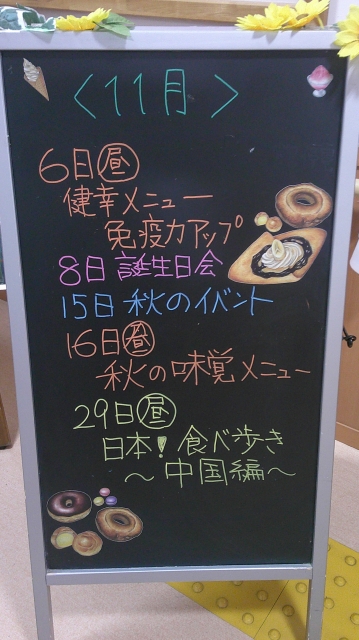 ＜11月＞
6日㊐昼
健幸メニュー
免疫力アップ
8日 誕生日会
15日 秋のイベント
16日昼
秋の味覚メニュー
29日昼
日本！食べ歩き
～中国編～